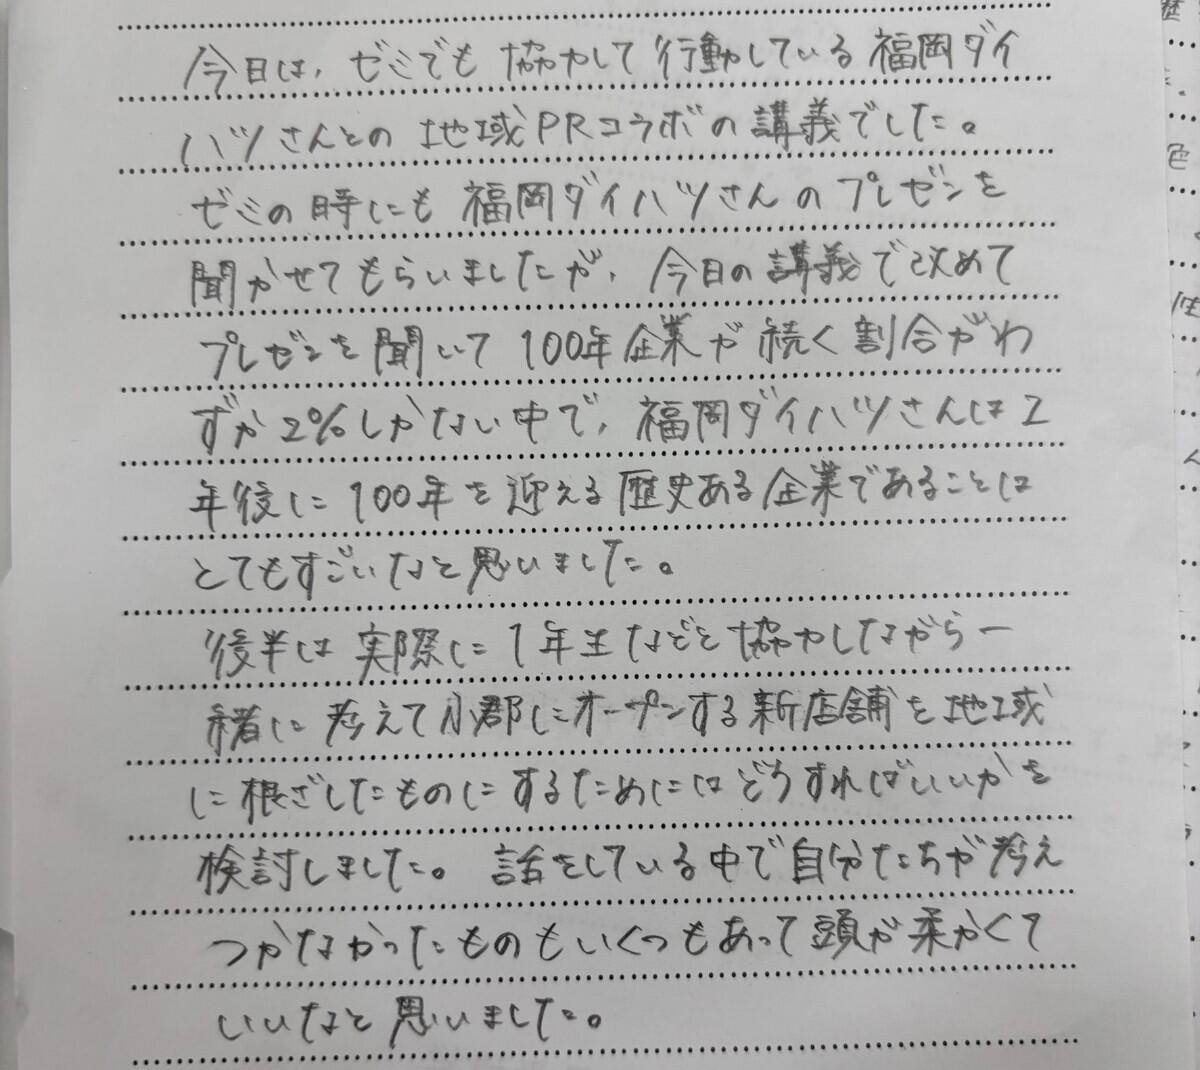 今日は、ゼミでも協力して行動している福岡ダイ
ハツさんとの地域PRコラボの講義でした。
ゼミの時にも福岡ダイハツさんのプレゼンを
聞かせてもらいましたが、今日の講義で改めて
プレゼンを聞いて100年企業が続く割合がわ
ずか2%しかない中で、福岡ダイハツさんは2
年後に100年を迎える歴史ある企業であることは
とてもすごいなと思いました。
後半は実際に1年生などと協力しながら一
緒に考えて小郡にオープンする新店舗を地域
に根ざしたものにするためにはどうすればいいかを
検討しました。話をしている中で自分たちが考え
つかなかったものもいくつもあって頭が柔かくて
いいなと思いました。
色
性
ん